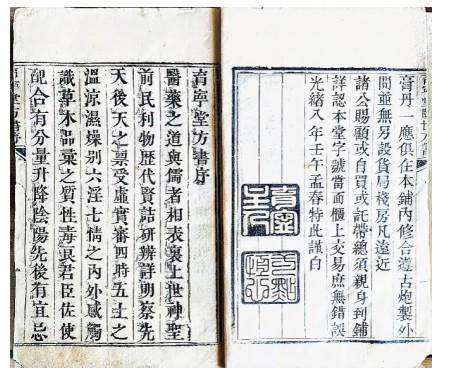 膏丹一應俱在本鋪內修合遵古炮製外
間並無另設貨局棧房凡遠近
諸公賜顧或自買或託帶總須親身到鋪
詳認本堂字號當面櫃上交易庶無錯誤
光緒八年壬午孟春特此謹白
育寧堂方書序
醫藥之道與儒者相表裏上世神聖
前民利物歷代賢喆研辨詳明察先
天後天之稟受虛實審四時五土之
溫涼濕燥別六淫七情之內外感觸
識草木品彙之質性毒良君臣佐使
配合有分量升降陰陽先後有宜忌